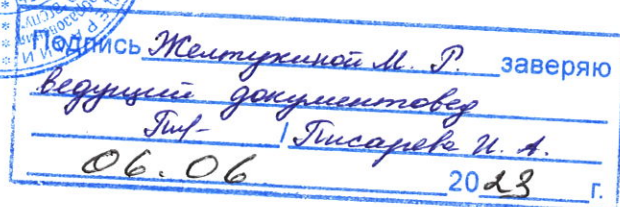 Подпись Желтухиной М. Р. заверяю
ведущий документовед
/ Писарева И. А.
06.06 2023 г.